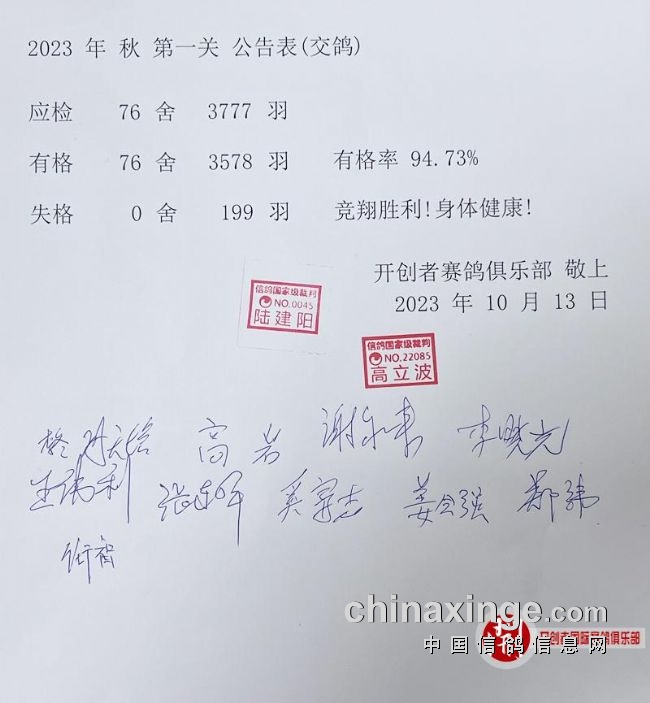 2023 年 秋 第一关 公告表(交鸽)
应检 76 舍 3777 羽
有格 76 舍 3578 羽 有格率 94.73%
失格 0 舍 199 羽 竞翔胜利!身体健康!
开创者赛鸽俱乐部 敬上
2023 年 10 月 13 日
信鸽国家级裁判
NO.0045
陆建阳
信鸽国家级裁判
NO.22085
高立波
高岩 谢东来 李晓光
王伟利 姜会强 郑伟
chinaxinge.com
中国信鸽信息网
开创者国际赛鸽俱乐部